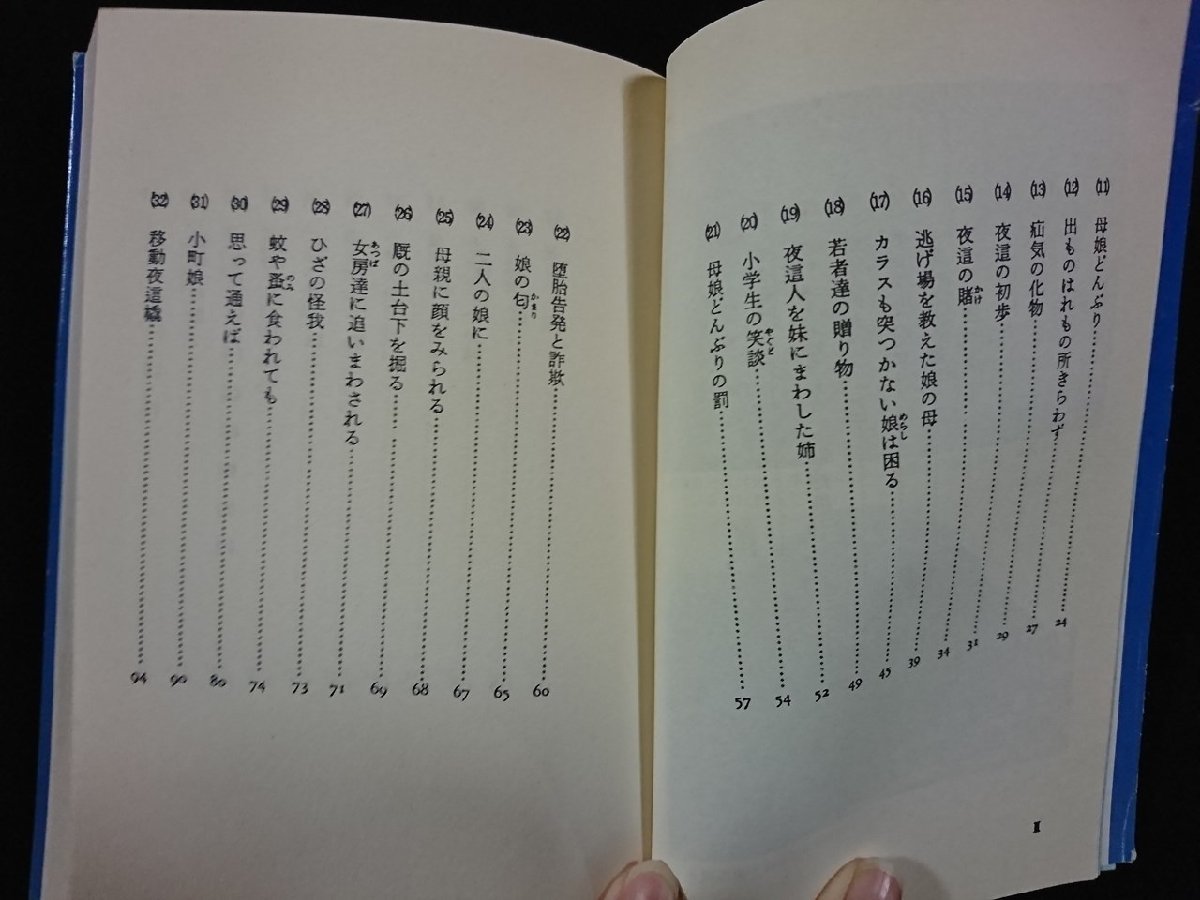 (11) 母娘どんぶり……24
(12) 出ものはれもの所きらわず……27
(13) 疝気の化物……29
(14) 夜這の初歩……31
(15) 夜這の賭……34
かけ
(16) 逃げ場を教えた娘の母……39
(17) カラスも突つかない娘は困る……45
めらし
(18) 若者達の贈り物……49
(19) 夜這人を妹にまわした姉……52
(20) 小学生の笑談……54
やくど
(21) 母娘どんぶりの罰……57
II
(22) 堕胎告発と詐欺……60
(23) 娘の匂……65
かまり
(24) 二人の娘に……67
(25) 母親に顔をみられる……68
(26) 厩の土台下を掘る……69
(27) 女房達に追いまわされる……71
あっぱ
(28) ひざの怪我……73
(29) 蚊や蚤に食われても……74
のみ
(30) 思って通えば……80
(31) 小町娘……90
(32) 移動夜這橇……94